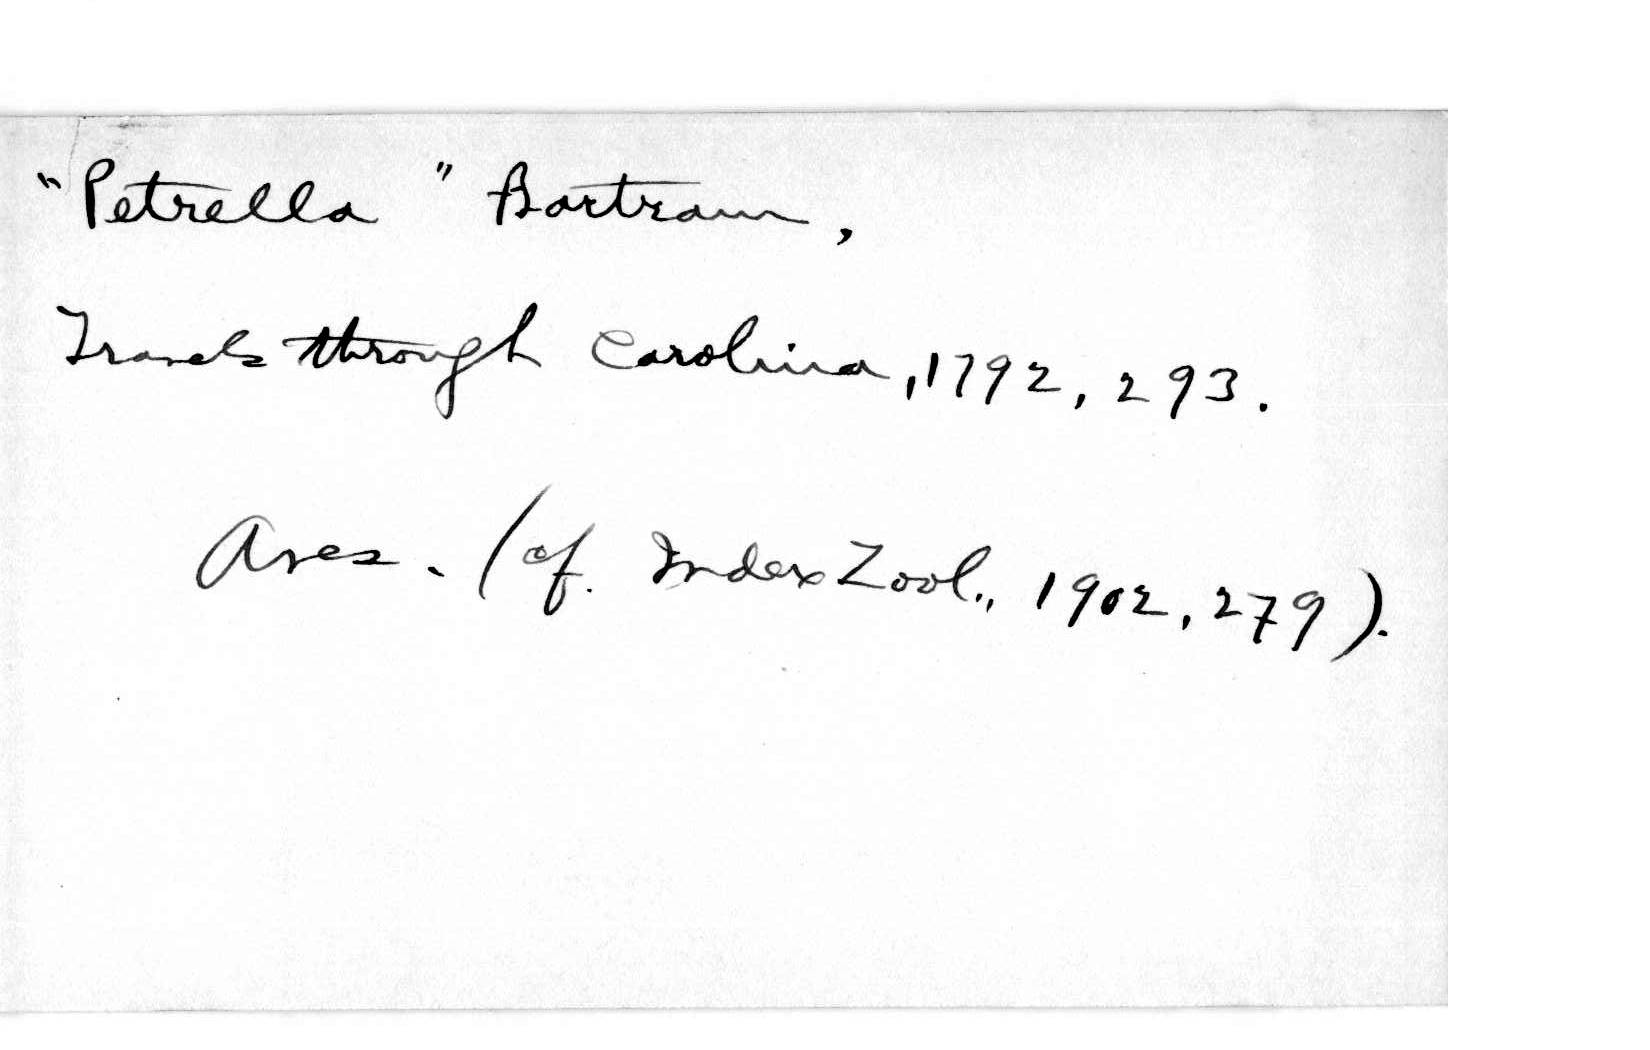 "Petrella" Bartram,
Travels through Carolina, 1792, 293.
Aves. (cf. Index Zool., 1902, 279).